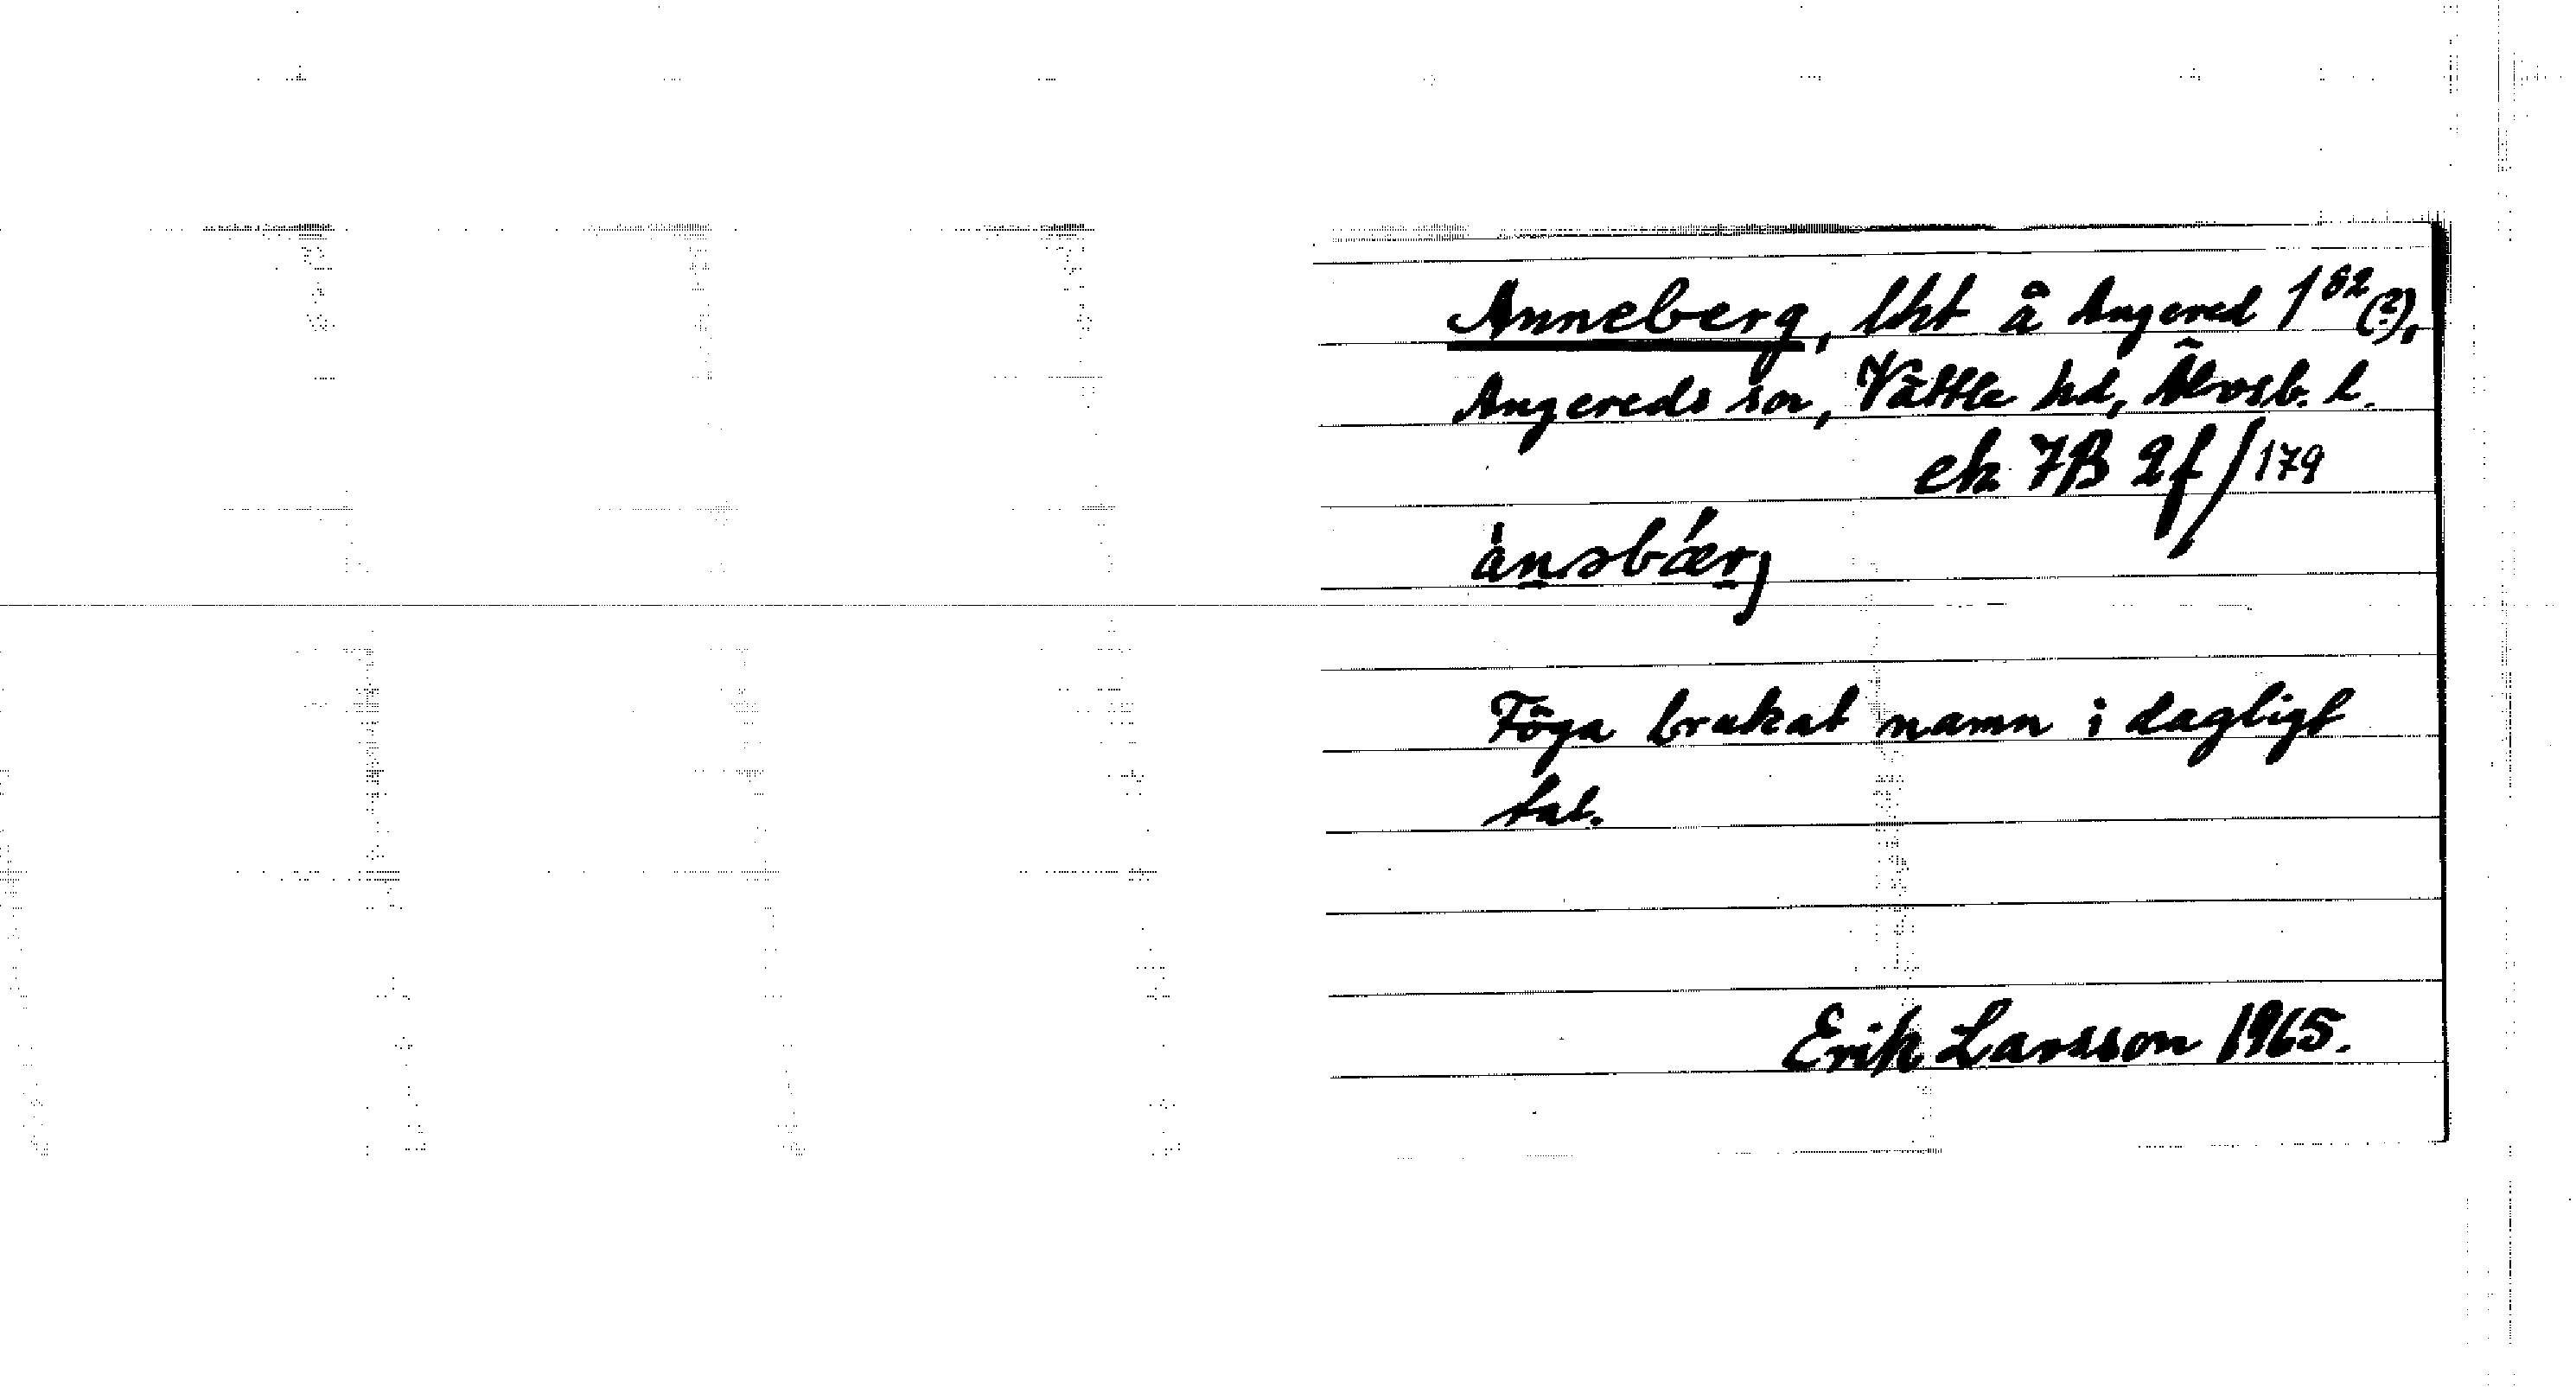 Anneberg, lht å Angered 1⁵²(?),
Angereds sn, Vättle hd, Älvsb. l.
ek 7B 2f/179
ànəbǽrj
Föga brukat namn i dagligt
tal.
Erik Larsson 1965.